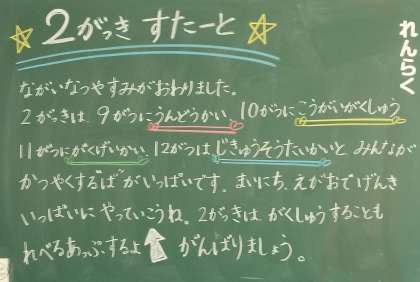 2がっき すたーと
れんらく
ながいなつやすみがおわりました。
2がっきは、9がつにうんどうかい 10がつにこうがいがくしゅう
11がつにがくげいかい、12がつはじきゅうそうたいかいと みんなが
かつやくする"ば"がいっぱいです。まいにち、えがおでげんき
いっぱいに やっていこうね。2がっきは がくしゅうすることも
れべるあっぷするよ がんばりましょう。